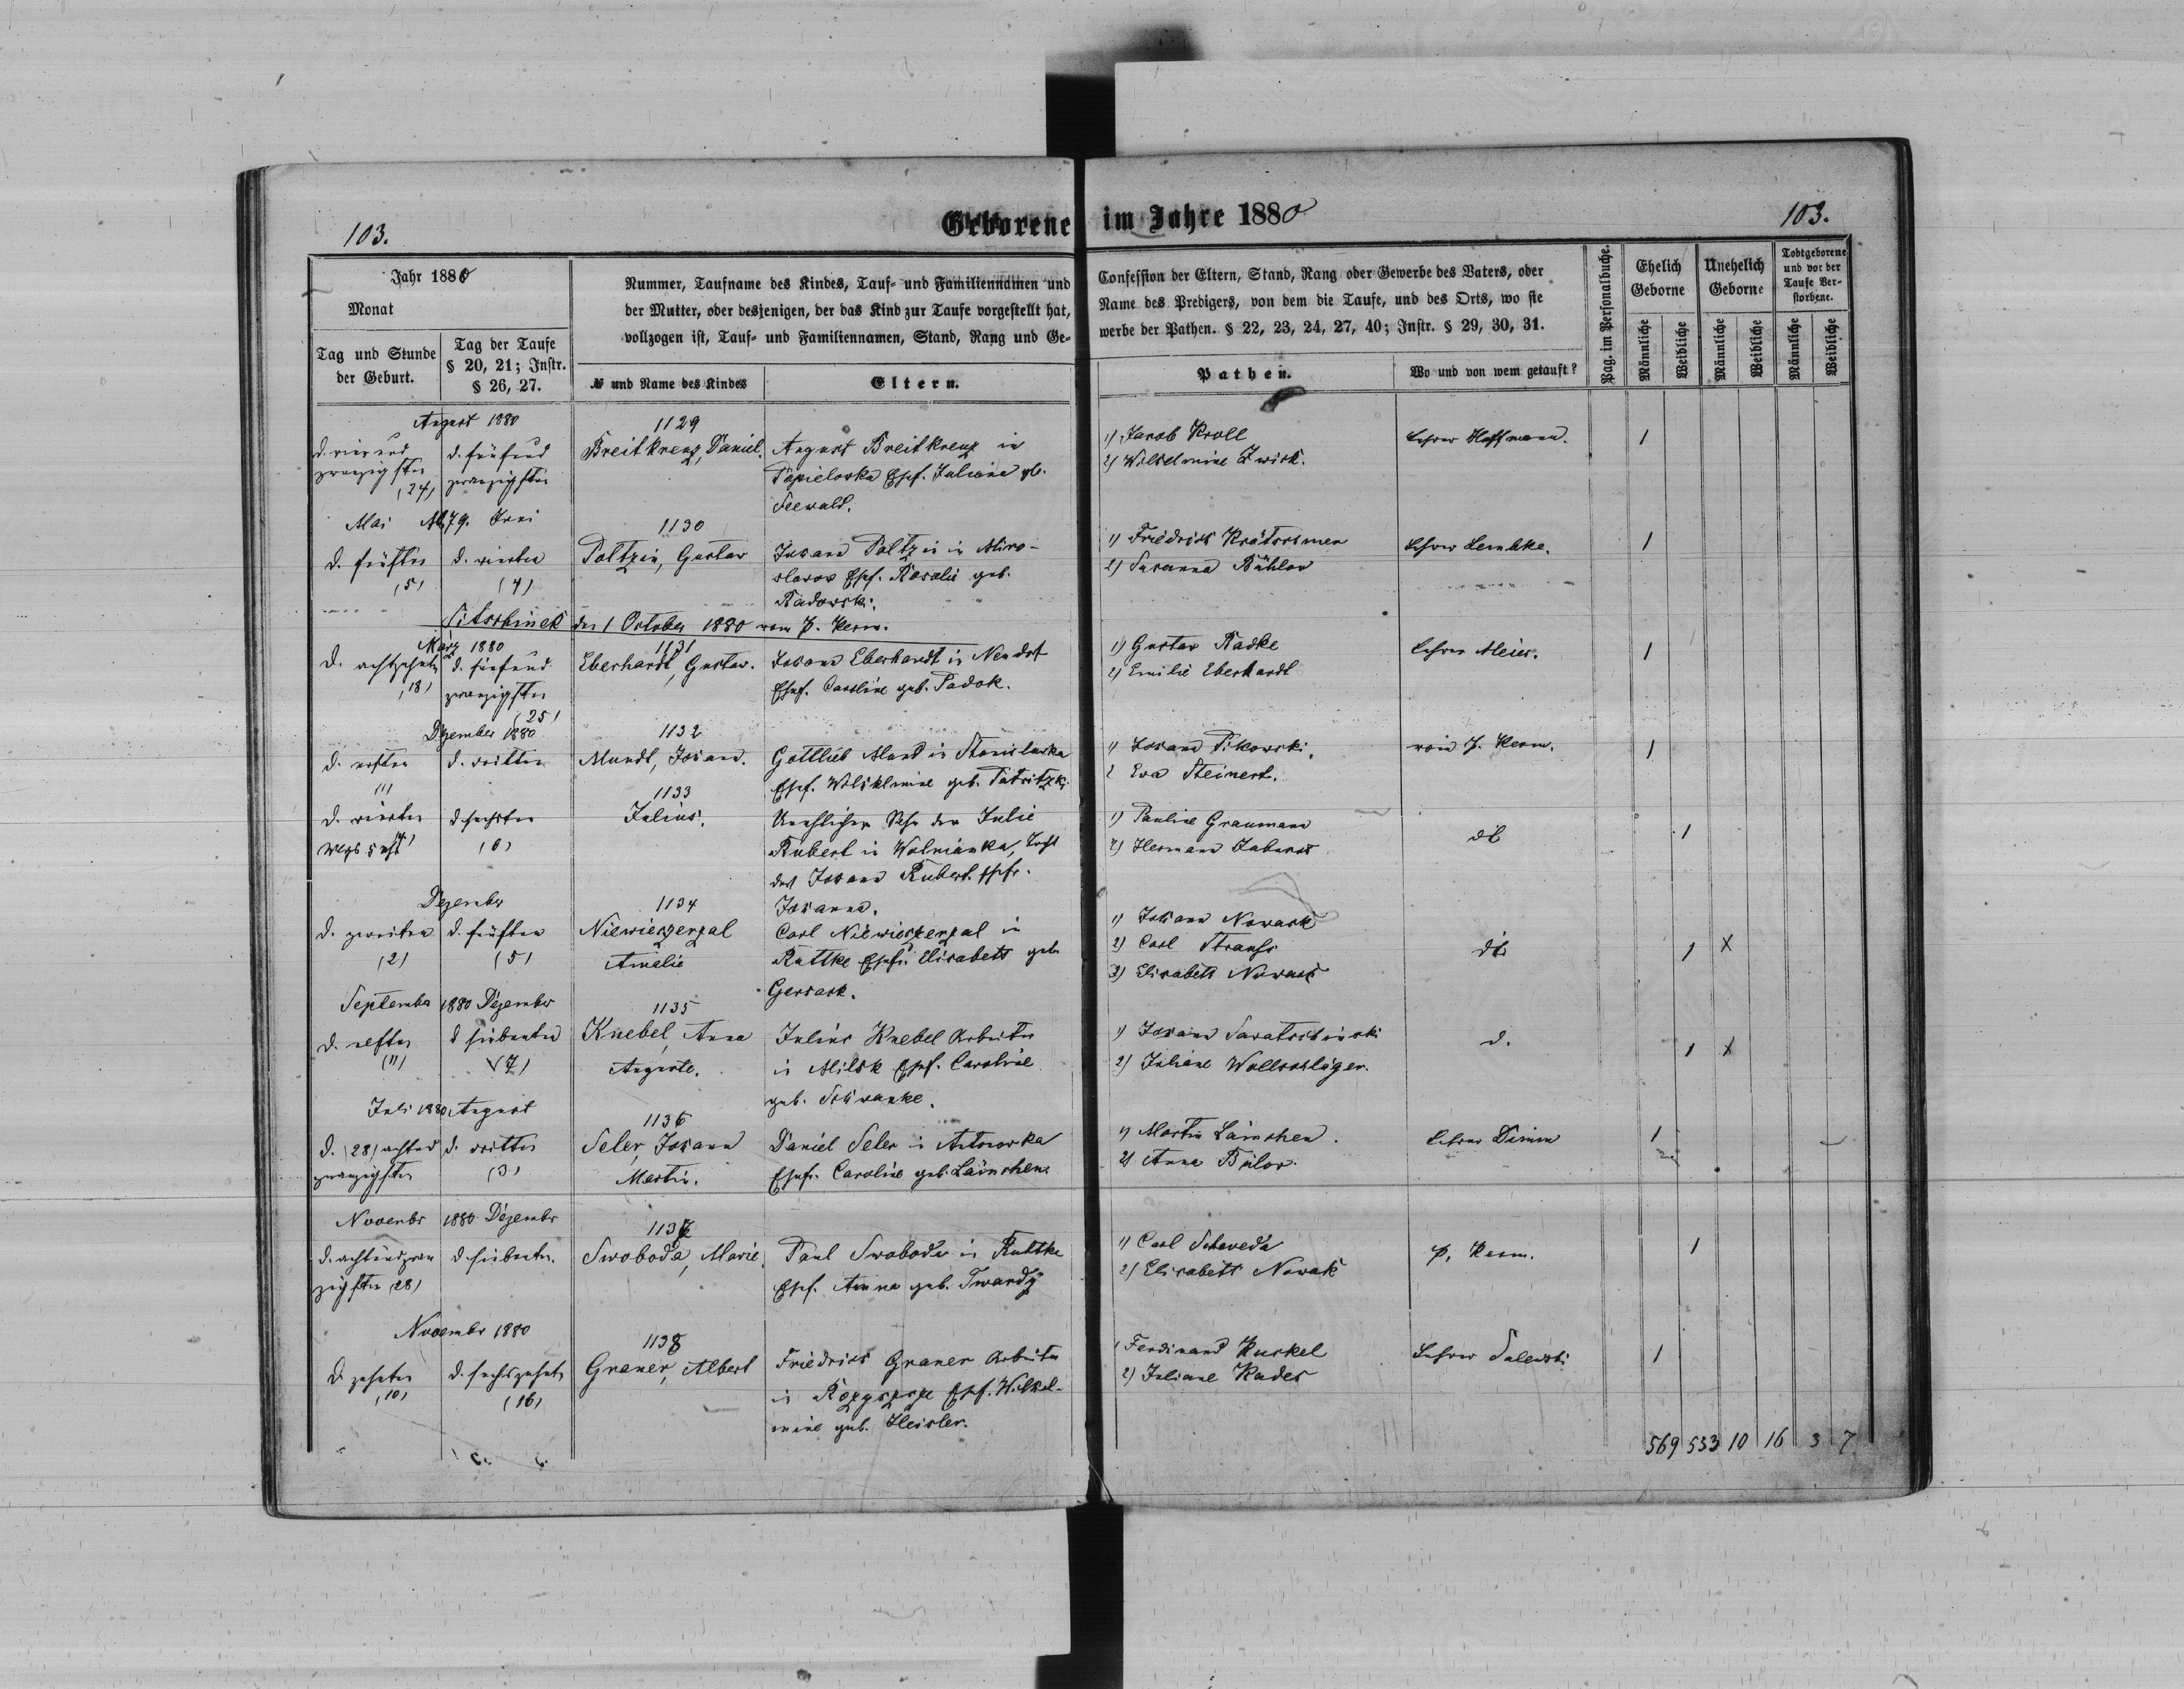 103.
Geborene im Jahre 1880
103.
Jahr 1880
Monat
Tag und Stunde der Geburt.
Tag der Taufe § 20, 21; Instr. § 26, 27.
Nummer, Taufname des Kindes, Tauf- und Familiennamen und
der Mutter, oder desjenigen, der das Kind zur Taufe vorgestellt hat,
vollzogen ist, Tauf- und Familiennamen, Stand, Rang und Ge-
№ und Name des Kindes
Eltern.
Confession der Eltern, Stand, Rang oder Gewerbe des Vaters, oder
Name des Predigers, von dem die Taufe, und des Orts, wo sie
werbe der Pathen. § 22, 23, 24, 27, 40; Instr. § 29, 30, 31.
Pathen.
Wo und von wem getauft?
Pag. im Personalbuche.
Ehelich Geborne
Unehelich Geborne
Todtgeborene und vor der Taufe Verstorbene.
Männliche
Weibliche
Männliche
Weibliche
Männliche
Weibliche
August 1880
d. vier und
zwanzigsten
(24)
d. fünfund
zwanzigsten
1129
Breitkreuz, Daniel.
August Breitkreuz in
Papielowka Ehef. Juliane gb.
Seewald.
1) Jacob Kroll
2) Wilhelmine Zwirk.
Lehrer Hoffmann.
1
Mai 79. Juni
d. fünften
(5)
d. vierten
(4)
1130
Poltzin, Gustav
Johann Poltzin in Miro-
slawow Ehef. Rosalie geb.
Radowski.
1) Friedrich
2) Susanna Bühlow
Lehrer Lembke.
1
den 1 October 1880 vom P. Kerm.
März 1880
d. achtzehnten
(18)
d. fünfund
zwanzigsten
(25)
1131
Eberhardt, Gustav.
Johann Eberhardt in Neudorf
Ehef. Caroline geb. Padok.
1) Gustav Radke
2) Emilie Eberhardt
Lehrer Meier.
1
Dezember 1880
d. ersten
(1)
d. dritten
1132
Mundt, Johann.
Gottlieb Mundt in Stanislawka
Ehef. Wilhelmine geb. Patritzki
1) Johann Pikowski.
2 Eva Steinert.
vom P. Kerm.
1
d. vierten
(4)
d sechsten
(6)
1133
Julius.
Unehlicher Sohn der Julie
Rubert in Wolnianka, Tocht
des Johann Rubert. Ehefr.
Johanna.
1) Pauline Graumann
2) Hermann
dto
1
Dezember
d. zweiten
(2)
d. fünften
(5)
1134
Niewieszerzal
Amalie
Carl Niewieszerzal in
Ruttke Ehefr. Elisabeth geb
Gersack.
1) Johann Nowack
2) Carl Strauss
3) Elisabeth Nowack
dto
1 X
September 1880 Dezember
d. elften
(11)
d siebenten
(7)
1135
Knebel, Anna
Auguste.
Julius Knebel Arbeiter
in Milsk Ehef. Caroline
geb. Schwanke.
1) Johann
2) Juliane Wollschläger.
d.
1 X
Juli 1880 August
d. (28) achtund
zwanzigsten
d. dritten
(3)
1136
Seler, Johann
Martin.
Daniel Seler in Antonowka
Ehefr. Caroline geb. Läinchen
1) Martin Läinchen.
2) Anna Bülow.
Lehrer Dimm
1
November 1880 Dezember
d. achtundzwan
zigsten (28)
d. siebenten.
1137
Swoboda, Marie.
Paul Swoboda in Ruttke
Ehef. Anna geb. Twardy
1) Carl Scheweda
2) Elisabeth Nowak
P. Kerm.
1
November 1880
d. zehnten
(10)
d. sechszehnten
(16)
1138
Graner, Albert
Friedrich Graner Arbeiter
in Rozyszcze Ehef. Wilhel-
mine geb. Heisler.
1 Ferdinand Kuskel
2) Juliane Kades
Lehrer Salewski
1
569 533 10 16 3 7